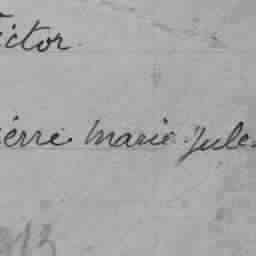 Victor
Pierre Marie Jules